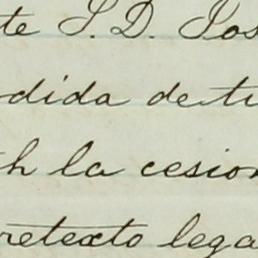 te S. D. Jos
dida de ti
th la cesion
retexto lega